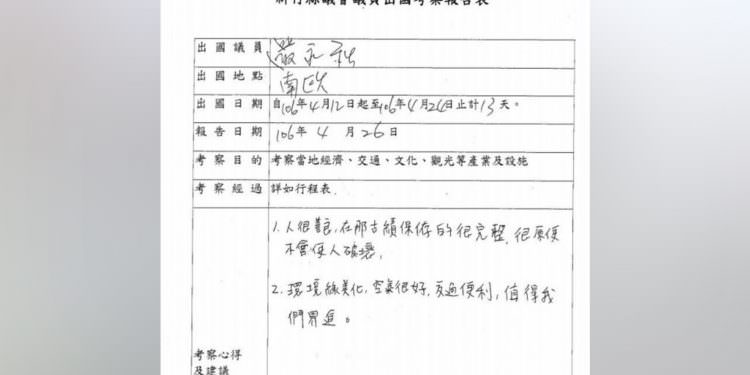 新竹縣議會議員出國考察報告表
出國議員 嚴永秋
出國地點 南歐
出國日期 自106年4月12日起至106年4月24日止計13天。
報告日期 106年4月26日
考察目的 考察當地經濟、交通、文化、觀光等產業及設施
考察經過 詳如行程表
1.人很善良,在那古績保存的很完整,很原使
不會使人破壞,
2.環境綠美化,空氣很好,交通便利,值得我
們異進。
考察心得
及建議